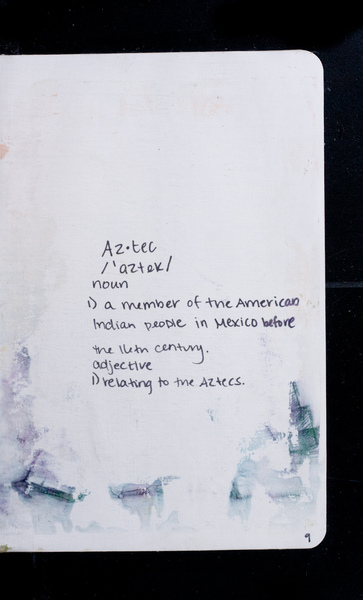 Az•tec
/'aztek/
noun
1) a member of the American
Indian people in Mexico before
the 16th century.
adjective
1) relating to the Aztecs.
9